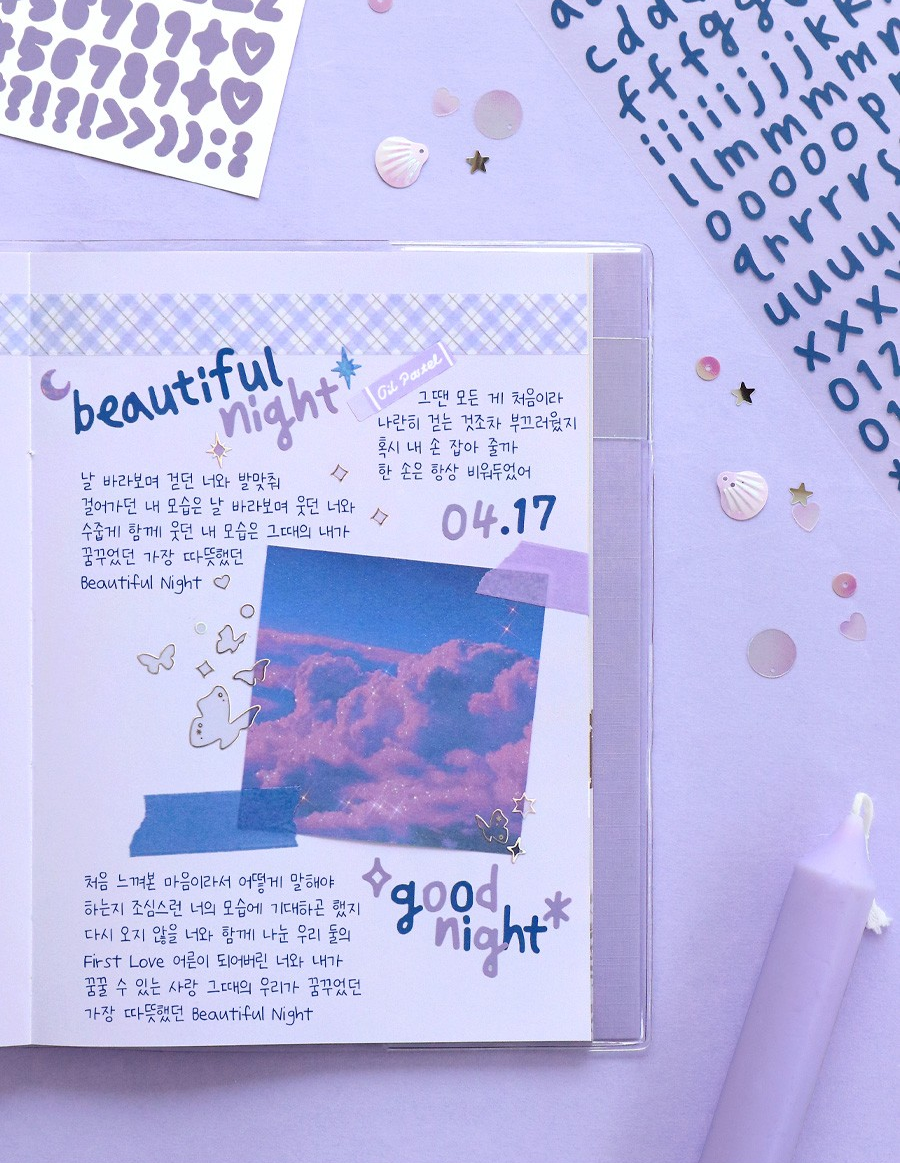 456789
456789
#!?!?!>>)):;
a
cddd
fffggg
iiiiijjjkkk
llmmmmm
oooooop
qrrrrs
uuuuu
xxxx
012
01
beautiful
night
Oil Pastel
그땐 모든 게 처음이라
나란히 걷는 것조차 부끄러웠지
혹시 내 손 잡아 줄까
한 손은 항상 비워두었어
04.17
날 바라보며 걷던 너와 발맞춰
걸어가던 내 모습은 날 바라보며 웃던 너와
수줍게 함께 웃던 내 모습은 그때의 내가
꿈꾸었던 가장 따뜻했던
Beautiful Night
처음 느껴본 마음이라서 어떻게 말해야
하는지 조심스런 너의 모습에 기대하곤 했지
다시 오지 않을 너와 함께 나눈 우리 둘의
First Love 어른이 되어버린 너와 내가
꿈꿀 수 있는 사랑 그때의 우리가 꿈꾸었던
가장 따뜻했던 Beautiful Night
good
night*